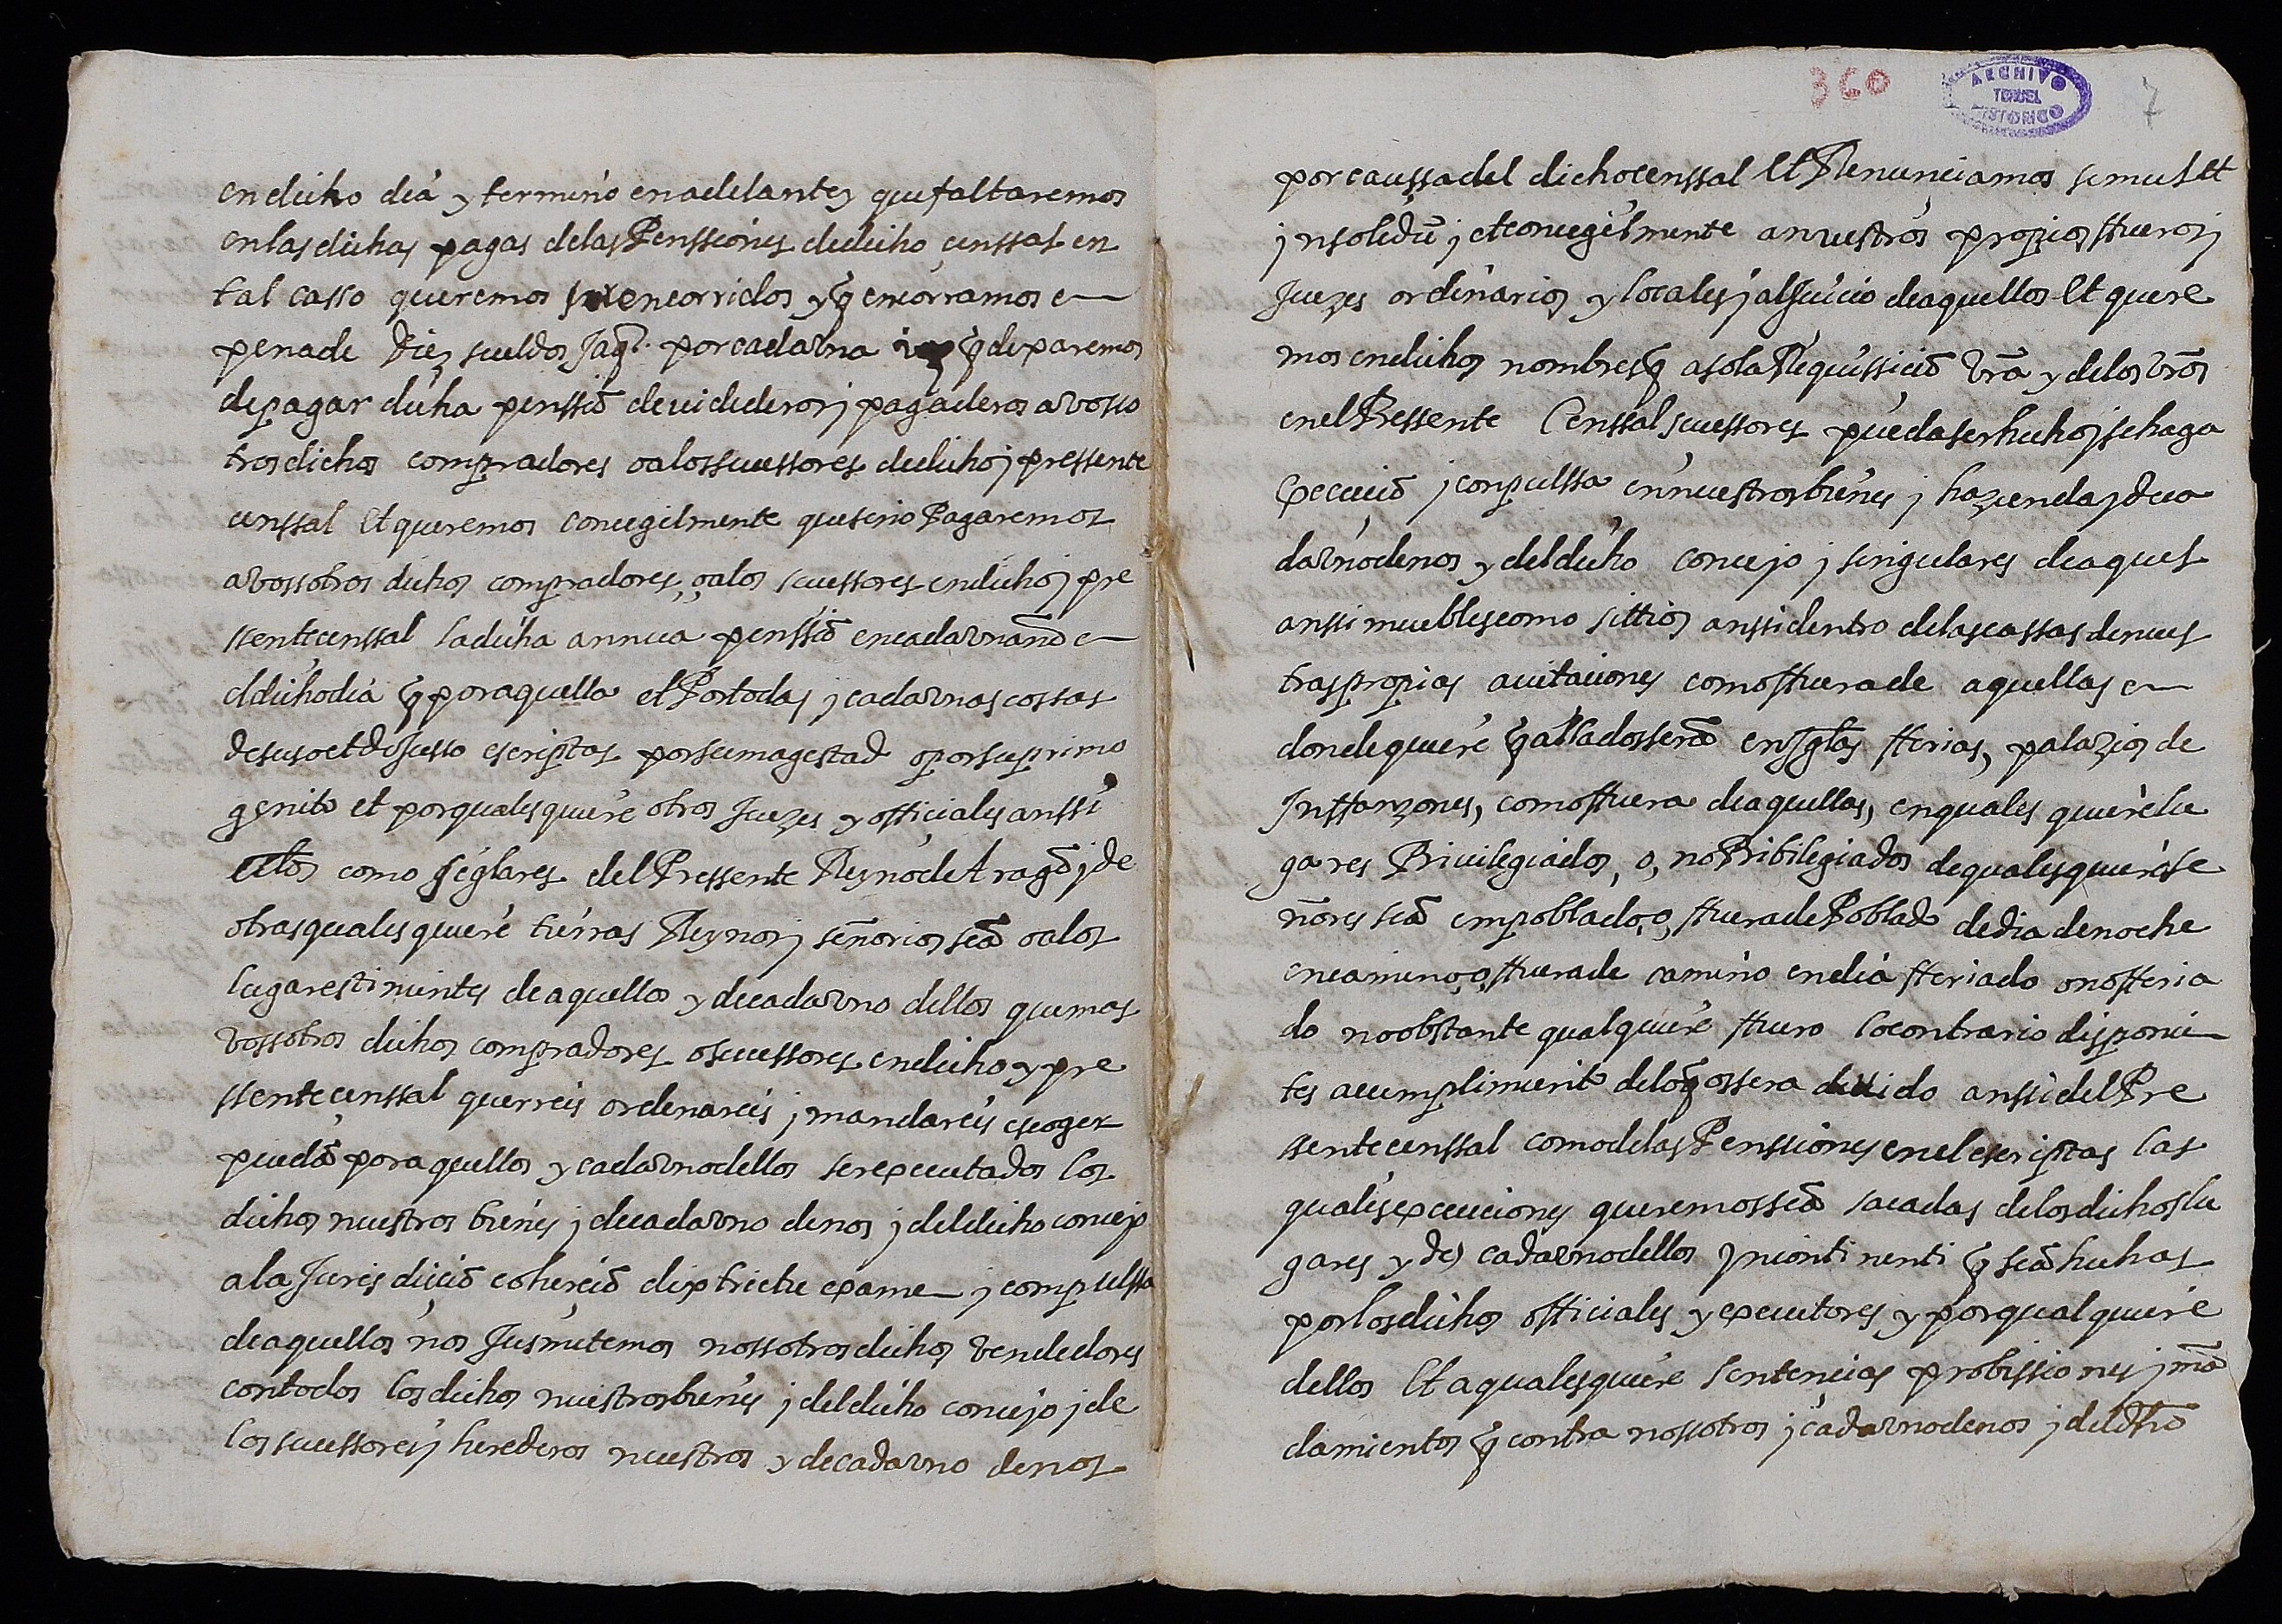 en dicho dia y termino en adelante y que faltaremos
en las dichas pagas de las Penssiones de dicho censsal en
tal casso queremos ser encorridos y q̃ encorramos en
pena de Diez sueldos Jaq̃s. por cada vna vez q̃ dexaremos
de pagar dicha penssiõ deuidederos y pagaderos a vosso
tros dichos compradores o a los sucessores de dicho y pressente
censsal Et queremos concegilmente que si no Pagaremos
a vossotros dichos compradores, o a los sucessores en dicho y pre
ssente censsal la dicha annua penssiõ en cada vn año en
el dicho dia q̃ por aquella et Por todas y cada vnas cossas
de suso et de Jusso escriptas por su magestad o por su primo
genito et por quales quiere otros Juezes y officiales anssi
ecc̃os como seglares del Pressente Reyno de Aragõ y de
otras quales quiere tierras Reynos y señorios seã o a los
lugarestinientes de aquellos y de cada vno dellos que mas
vossotros dichos compradores o sucessores en dicho y pre
ssente censsal querreis ordenareis y mandareis escoger
puedã por aquellos y cada vno dellos ser executados los
dichos nuestros bienes y de cada vno de nos y del dicho concejo
a la Jurisdiciõ coherciõ dixtricte examen y compulssa
de aquellos nos Jusmetemos nossotros dichos vendedores
con todos los dichos nuestros bienes y del dicho concejo y de
los sucessores y herederos nuestros y de cada vno de nos
360
ARCHIVO
TERUEL
HISTORICO
7
por caussa del dicho censsal Et Renunciamos simul et
ynsolidũ y et concegilmente a nuestros propios ffueros y
Juezes ordinarios y locales y al Juicio de aquellos Et quere
mos en dichos nombres q̃ a sola Requissiciõ vr̃a y de los vr̃os
en el Pressente Censsal sucessores pueda ser hecho y se haga
execuciõ y conpulssa en nuestros bienes y hazienda y de ca
da vno de nos y del dicho concejo y singulares de aquel
anssi muebles como sittios anssi dentro de las cassas de nues
tras propias auitaciones como ffuera de aquellas en
donde quiere q̃ allados serã en Ygl̃as fferias, palazios de
Inffanzones, como ffuera de aquellas, en quales quiere lu
gares Priuilegiados, o, no Pribilegiados de quales quiere se
ñores seã en poblado, o, ffuera de Poblado de dia de noche
en camino, o, ffuera de camino en dia fferiado o no fferia
do no obstante qualquiere ffuero lo contrario disponien
tes a cumplimiento de lo q̃ os sera deuido anssi del Pre
ssente censsal como de las Penssiones en el escriptas las
quales execuciones queremos seã sacadas de los dichos lu
gares y de cada vno dellos yncontinenti q̃ seã hechas
por los dichos officiales y executores y por qualquiere
dellos Et a quales quiere sentencias probissiones y mã
damientos q̃ contra nossotros y cada vno de nos y del dh̃o